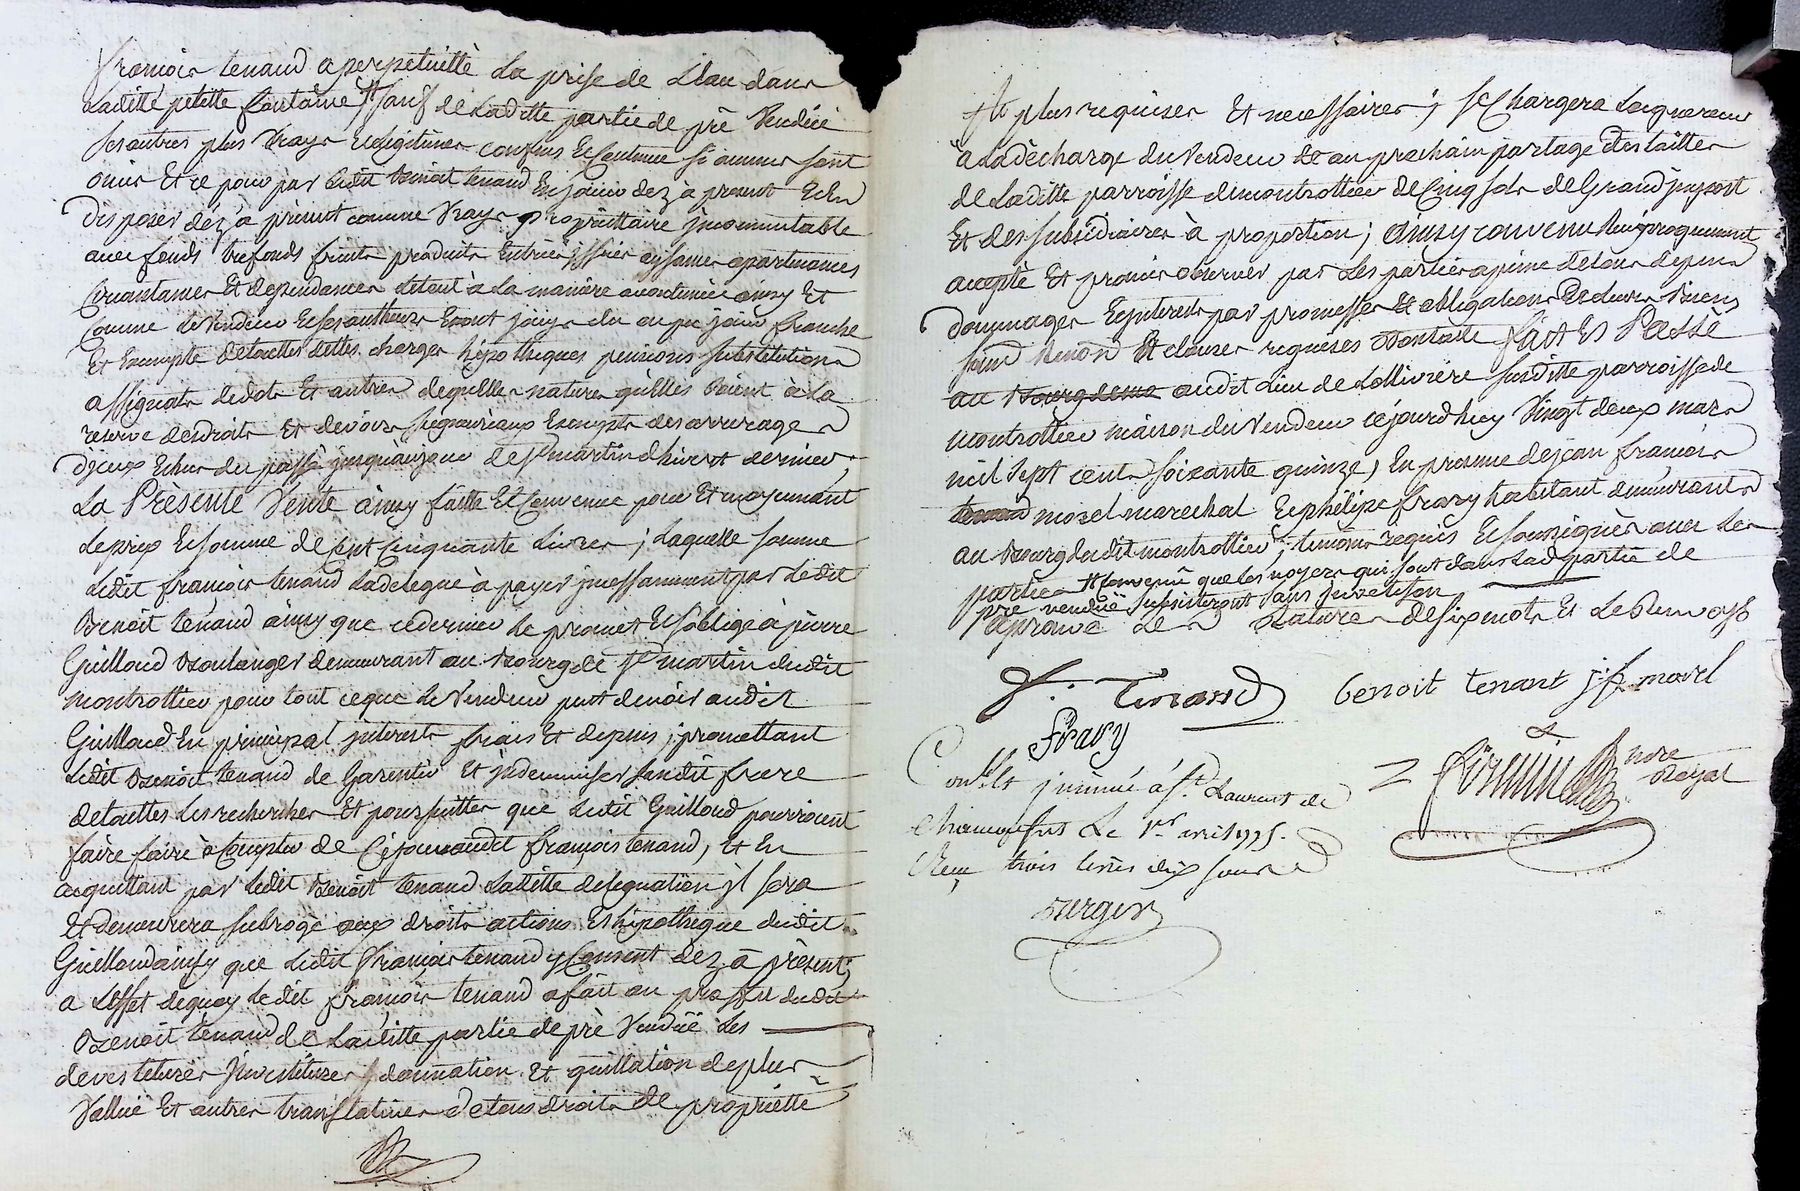 françois tenaud a perpetuitté La prise de L'eau dans
Laditte petitte fontaine, # sauf de Laditte partie de pré Vendüe
ses autres plus Vrays Et Legitimes confins Et Contenue si aucuns sont
omis Et ce pour par Ledit benoit tenaud En jouir dez à present Et En
disposer dez à présent comme Vrays propriettaire jncommutable
avec fonds trefonds fruits produits Entrées jssües aysances apartenances
Circonstances Et dependances Letout à La maniere accoutumée ainsy Et
Comme Le Vendeur Et ses autheurs En ont jouys du ou pu jouir franche
Et Exempte de touttes dettes, charges hipotheques pensions substitutions
assignats de dots Et autres de quelles natures qu'elles soient à La
reserve des droits Et devoirs seigneuriaux Exempts des arrerages
d'jceux Echus du passé jusqu'au jour de St martin d'hivert dernier;
La Présente Vente ainsy faitte Et Convenue pour Et moyennant
Le prix Et somme de Cent Cinquante Livres; Laquelle somme
Ledit françois tenaud La deleguée à payer jncessamment par Ledit
Benoit tenaud ainsy que ce dernier Le promet Et s'oblige à pierre
Guilloud Boulanger demeurant au Bourg de St martin dudit
montrottier pour tout ce que Le Vendeur peut devoir audit
Guilloud En principal jnterests frais Et depens; promettant
Ledit Benoit tenaud de Garentir Et jndemniser Sondit frere
de touttes Les recherches Et poursuittes que Ledit Guilloud pourroient
faire faire à Compter de Ce jour audit françois tenaud, Et En
acquittant par Ledit Benoit tenaud Laditte delegation jl sera
Et demeurera subrogé aux droits actions Et hipotheque dudit
Guilloud ainsy que Ledit françois tenaud y Consent dez à présent;
a L'effet de quoy Ledit françois tenaud a fait au proffit dudit
Benoit tenaud de Laditte partie de pré Vendüe Les
devestitures jnvestitures donnation Et quittation de plus
Vallüe Et autres translatives de tous droits de propriétté
Et plus requises Et necessaires; se Chargera L'acquereur
à La décharge du Vendeur Et au prochain partage des tailles
de Laditte parroisse de montrottier de Cinq sols de Grand jmpost
Et des subsidiaires à proportion; ainsy convenu Reciproquement
accepté Et promis observer par Les parties a peine de tous depens
dommages Et jnterests par promesses Et obligations De leurs Biens
soumis Renond. Et clauses requises Dont acte fait Et Passé
au Bourg audit Lieu de Lollivière susditte parroisse de
montrottier maison du Vendeur ce jourd'huy Vingt deux mars
mil sept cents soixante quinze, En presence de jean françois
tenaud morel marechal Et philipe fravy habitant demeurants
au Bourg dudit montrottier; temoins requis Et soussignés avec Les
parties # Convenüe que Les noyers qui sont dans Lad. partie de
pré vendüe subsisteront sans
aprouvé Le Ratures de six mots Et Le Renvoys
f: Tenand benoit tenant j: f morel
fravy
Conlé Et jnsinué á St. Laurent de
Chamousset Le 1er avril 1775.
Reçu trois livres dix sous
fermin nore Royal